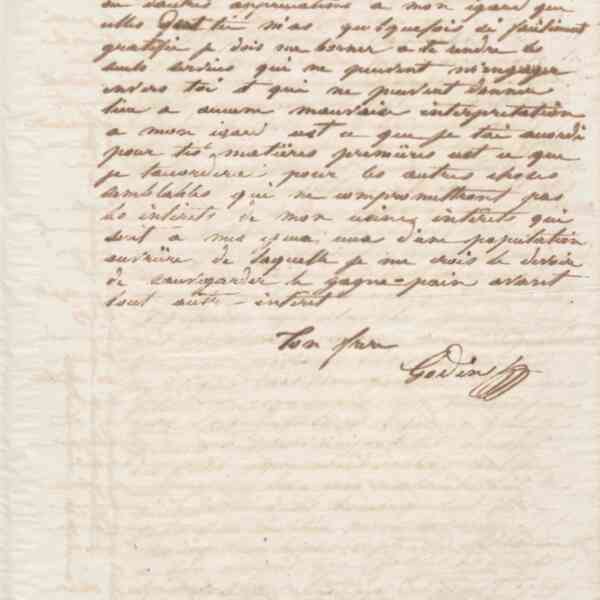 de d'autres appréciations à mon égard que
celles dont tu m'as quelquefois si facilement
gratifié je dois me borner a te rendre les
seuls services qui ne peuvent m'engager
envers toi et qui ne peuvent donner
lieu a aucune mauvaise interprétation
a mon égard est ce que je t'ai accordé
pour tes matières premières est ce que
je t'accorderai pour les autres choses
semblables qui ne compromettront pas
les intérêts de mon usine, intérêts qui
sont à mes yeux ceux d'une population
ouvrière de laquelle je me crois le devoir
de sauvegarder le gagne-pain avant
tout autre intérêt
Ton frère
Godin